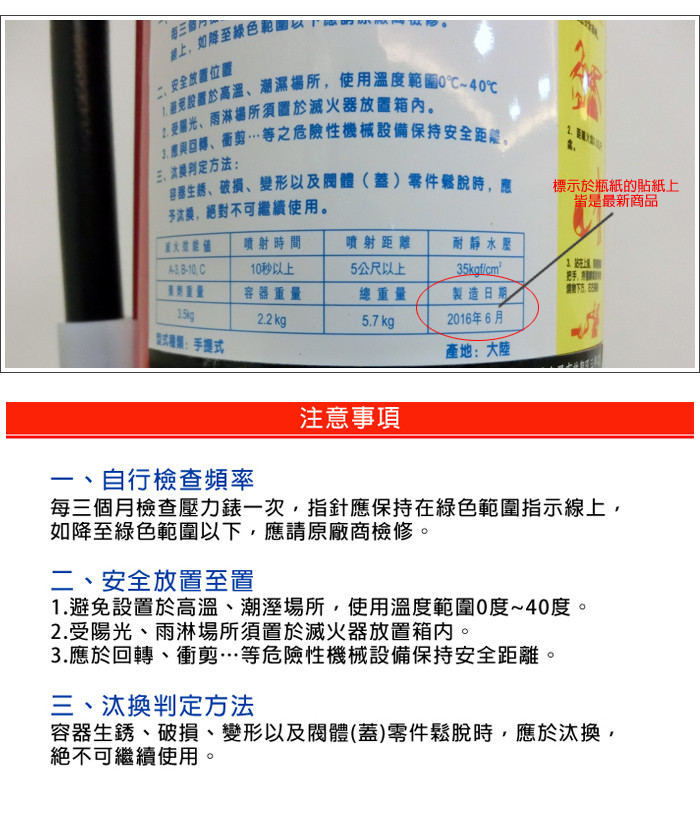 線上，如降至綠色範圍以下應請原廠商檢修。
二、安全放置位置
1.避免設置於高溫、潮濕場所，使用溫度範圍0℃~40℃
2.受陽光、雨淋場所須置於滅火器放置箱內。
3.應與回轉、衝剪…等之危險性機械設備保持安全距離。
三、汰換判定方法：
容器生銹、破損、變形以及閥體（蓋）零件鬆脫時，應
予汰換，絕對不可繼續使用。
標示於瓶紙的貼紙上
皆是最新商品
滅火效能值 噴射時間 噴射距離 耐靜水壓
A-3, B-10, C 10秒以上 5公尺以上 35kgf/cm²
藥劑重量 容器重量 總重量 製造日期
3.5kg 2.2 kg 5.7 kg 2016年 6 月
型式種類：手提式 產地：大陸
注意事項
一、自行檢查頻率
每三個月檢查壓力錶一次，指針應保持在綠色範圍指示線上，
如降至綠色範圍以下，應請原廠商檢修。
二、安全放置至置
1.避免設置於高溫、潮溼場所，使用溫度範圍0度~40度。
2.受陽光、雨淋場所須置於滅火器放置箱内。
3.應於回轉、衝剪…等危險性機械設備保持安全距離。
三、汰換判定方法
容器生銹、破損、變形以及閥體(蓋)零件鬆脫時，應於汰換，
絕不可繼續使用。